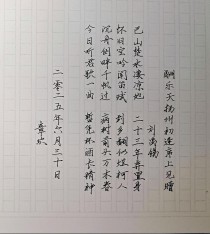 酬乐天扬州初逢席上见赠
刘禹锡
巴山楚水凄凉地 二十三年弃置身
怀旧空吟闻笛赋 到乡翻似烂柯人
沉舟侧畔千帆过 病树前头万木春
今日听君歌一曲 暂凭杯酒长精神
二零二五年六月三十日
章